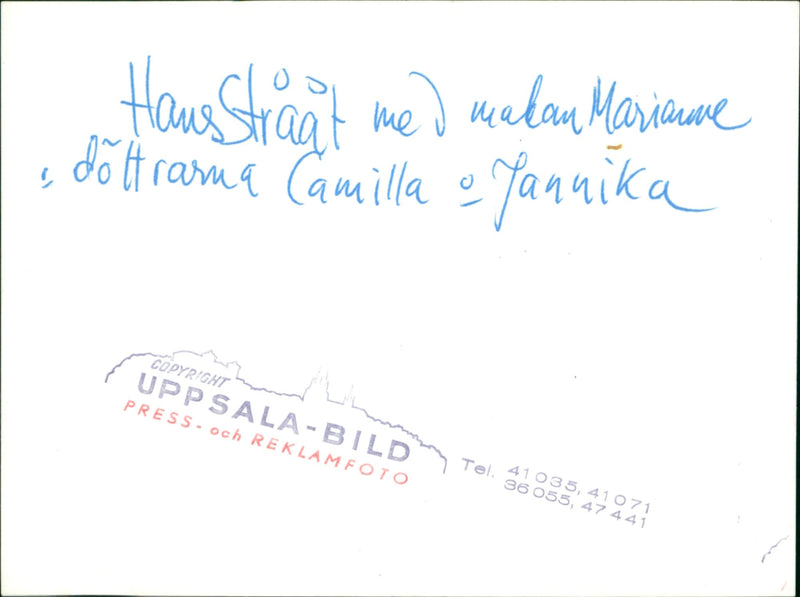 Hans Strååt med makan Marianne
o döttrarna Camilla o Jannika
COPYRIGHT
UPPSALA-BILD
PRESS- och REKLAMFOTO
Tel. 41035, 41071
36055, 47441